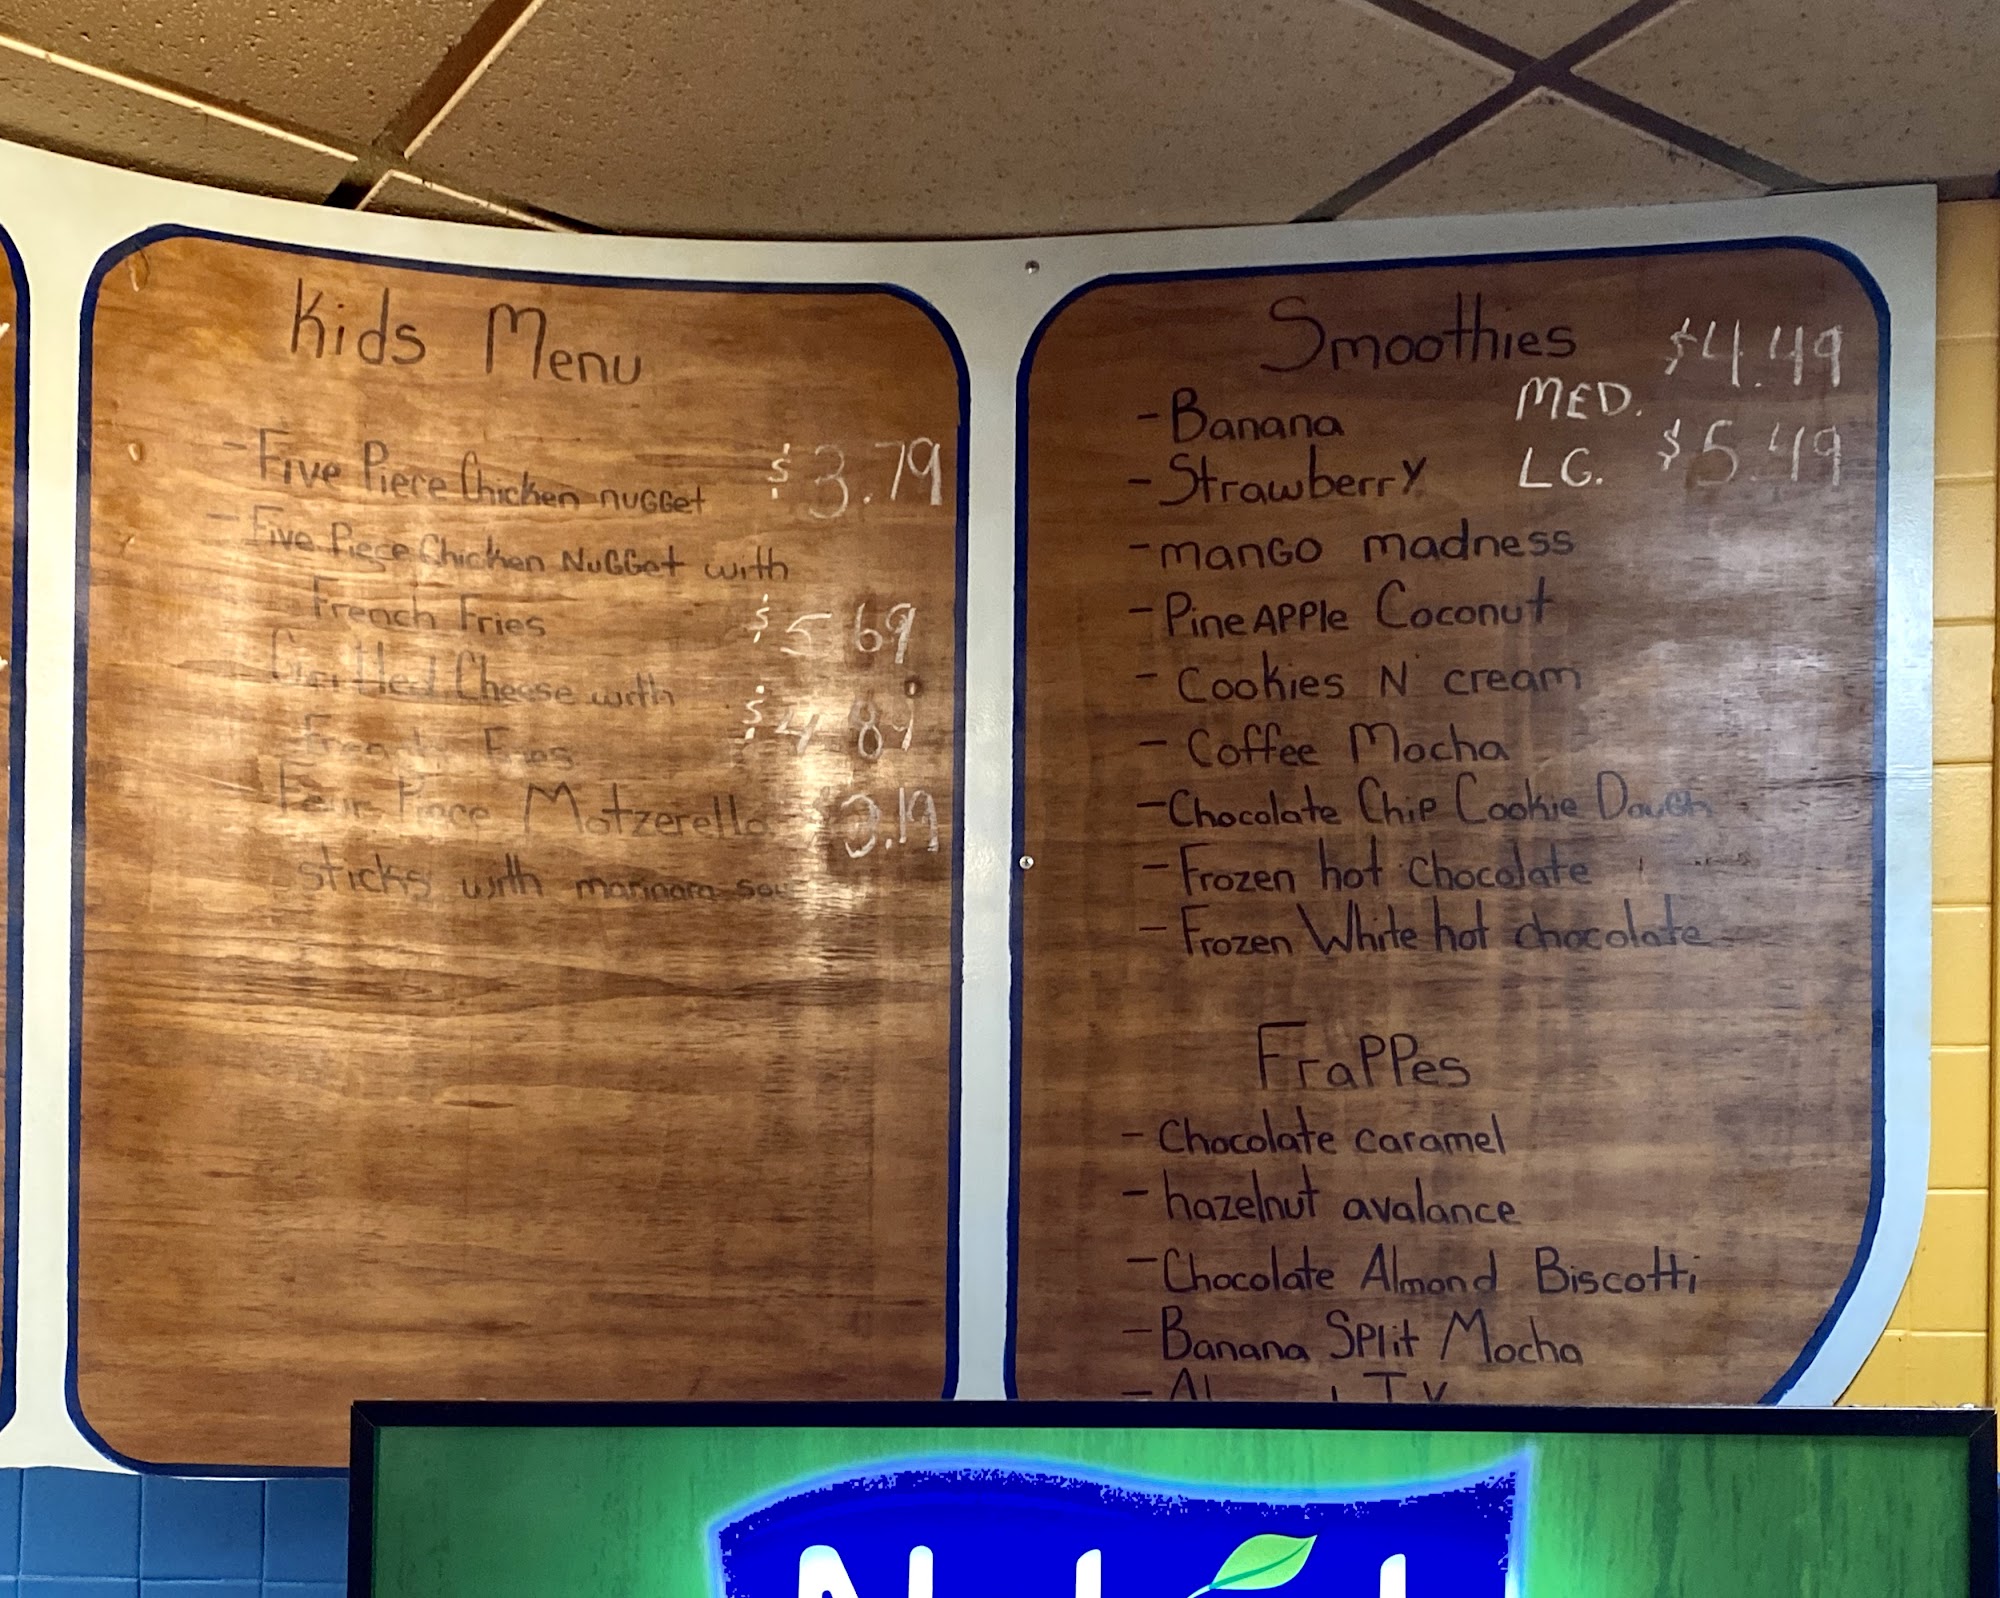 Kids Menu
- Five Piece Chicken nuGGet $3.79
- Five Piece Chicken NuGGet with
French Fries $5.69
Grilled Cheese with $4.89
French Fries
Four Piece Motzerella 3.19
sticks with marinara
Smoothies $4.49
- Banana MED.
- Strawberry LG. $5.49
- manGo madness
- PineAPPle Coconut
- Cookies N' cream
- Coffee Mocha
- Chocolate Chip Cookie Dough
- Frozen hot chocolate
- Frozen White hot chocolate
FraPPes
- Chocolate caramel
- hazelnut avalance
- Chocolate Almond Biscotti
- Banana Split Mocha